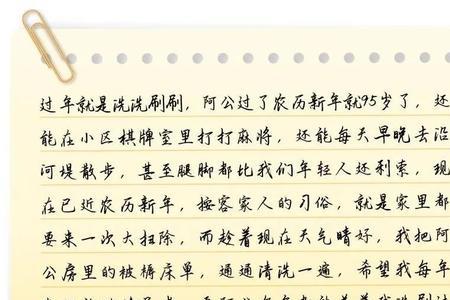 过年就是洗洗刷刷，阿公过了农历新年就95岁了，还
能在小区棋牌室里打打麻将，还能每天早晚去沿
河堤散步，甚至腿脚都比我们年轻人还利索，现
在已近农历新年，按客家人的习俗，就是家里都
要来一次大扫除，而趁着现在天气晴好，我把阿
公房里的被褥床单，通通清洗一遍，希望我每年